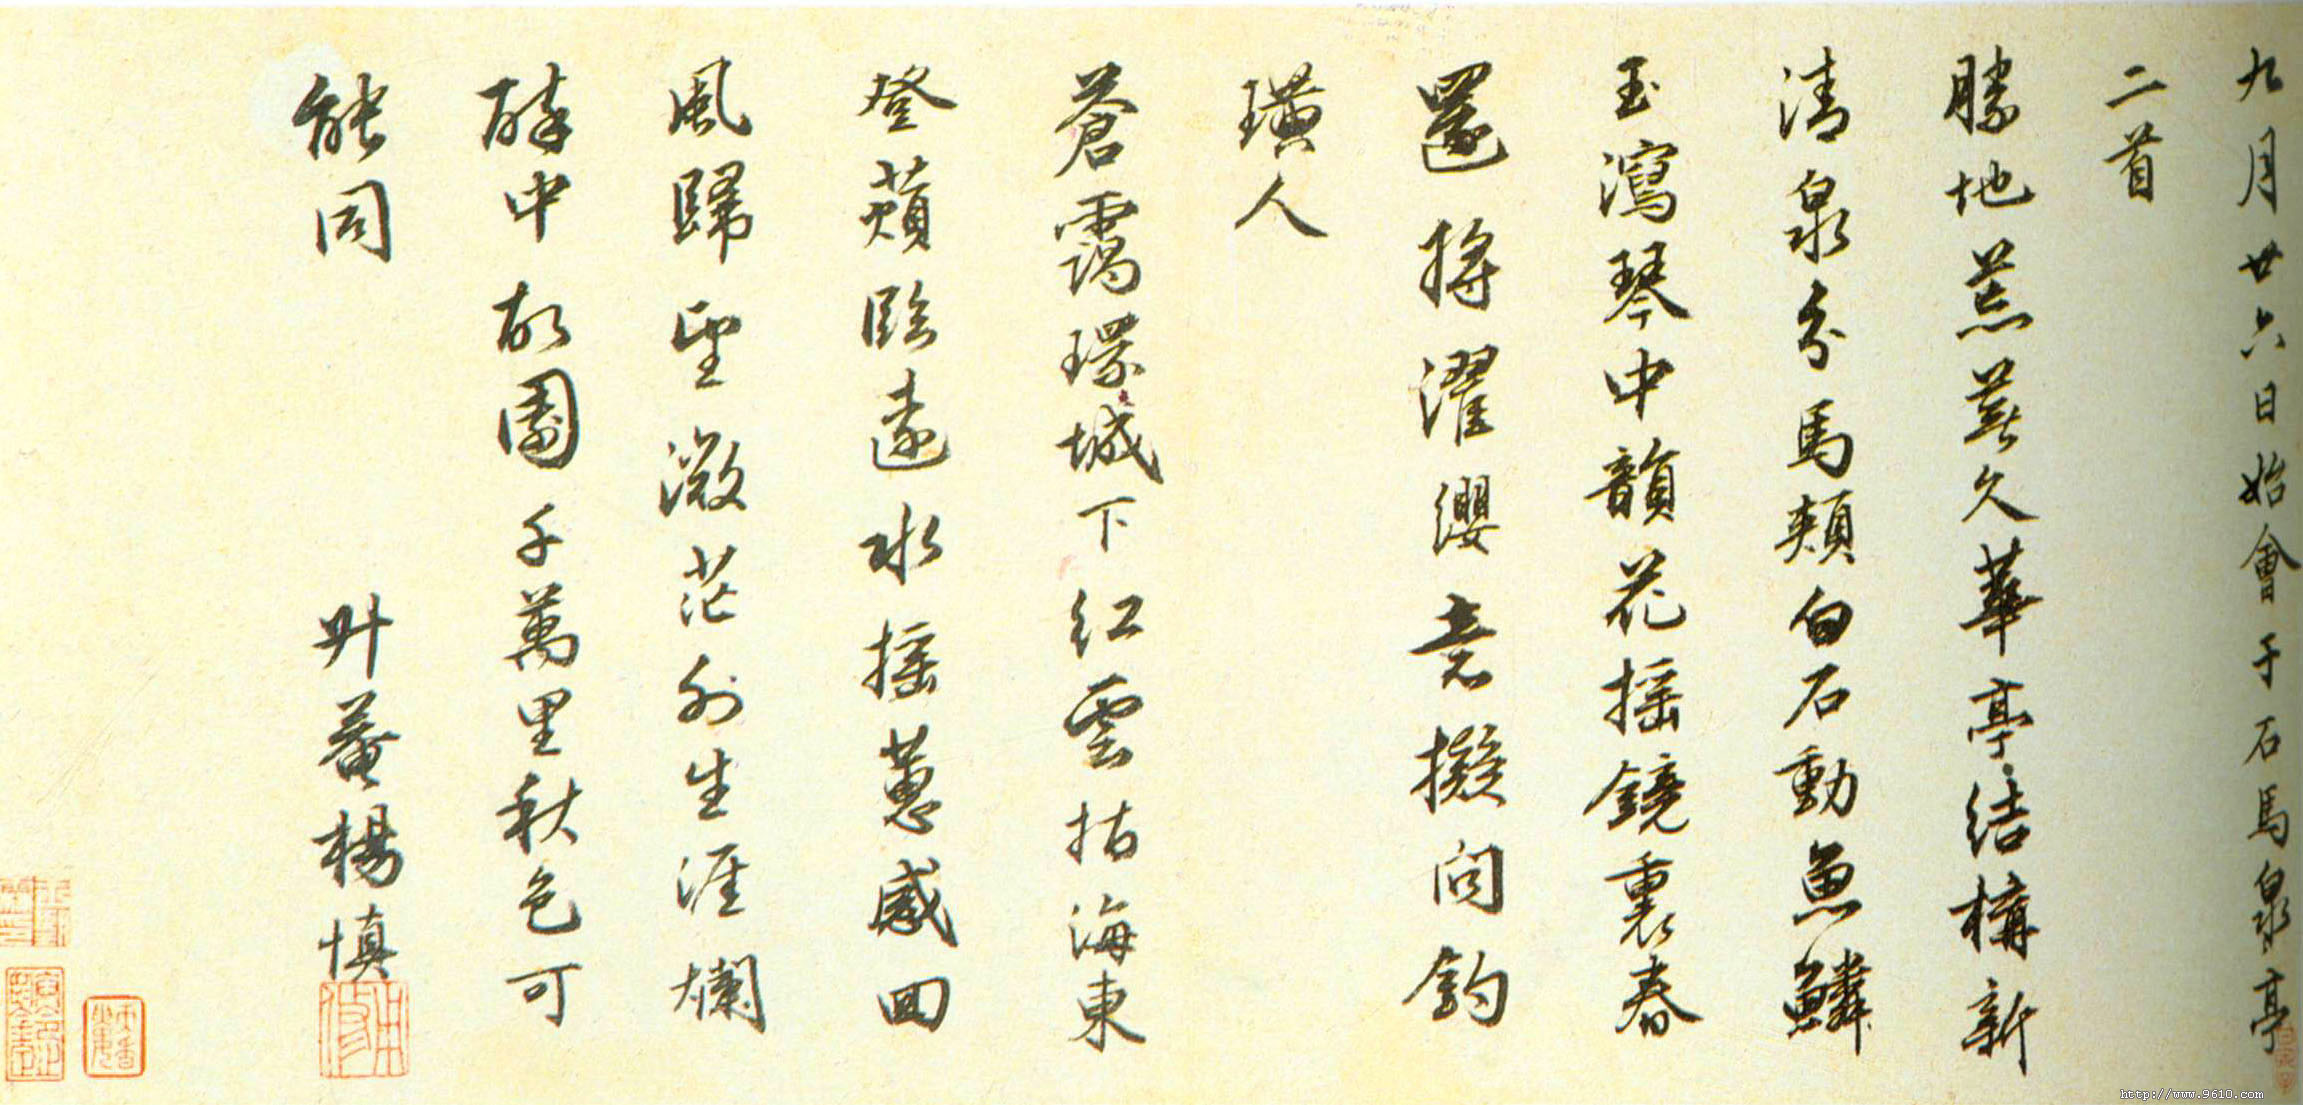 九月廿六日始會于石馬泉亭
二首
勝地荒蕪久華亭結構新
清泉分馬頰白石動魚鱗
玉瀉琴中韻花搖鏡裏春
還將濯纓意擬問釣
璜人
蒼靄環城下紅雲指海東
登蘋臨遠水搖蕙感回
風歸望激茫外生涯爛
醉中故園千萬里秋色可
能同
升菴楊慎
用修
http://www.9610.com